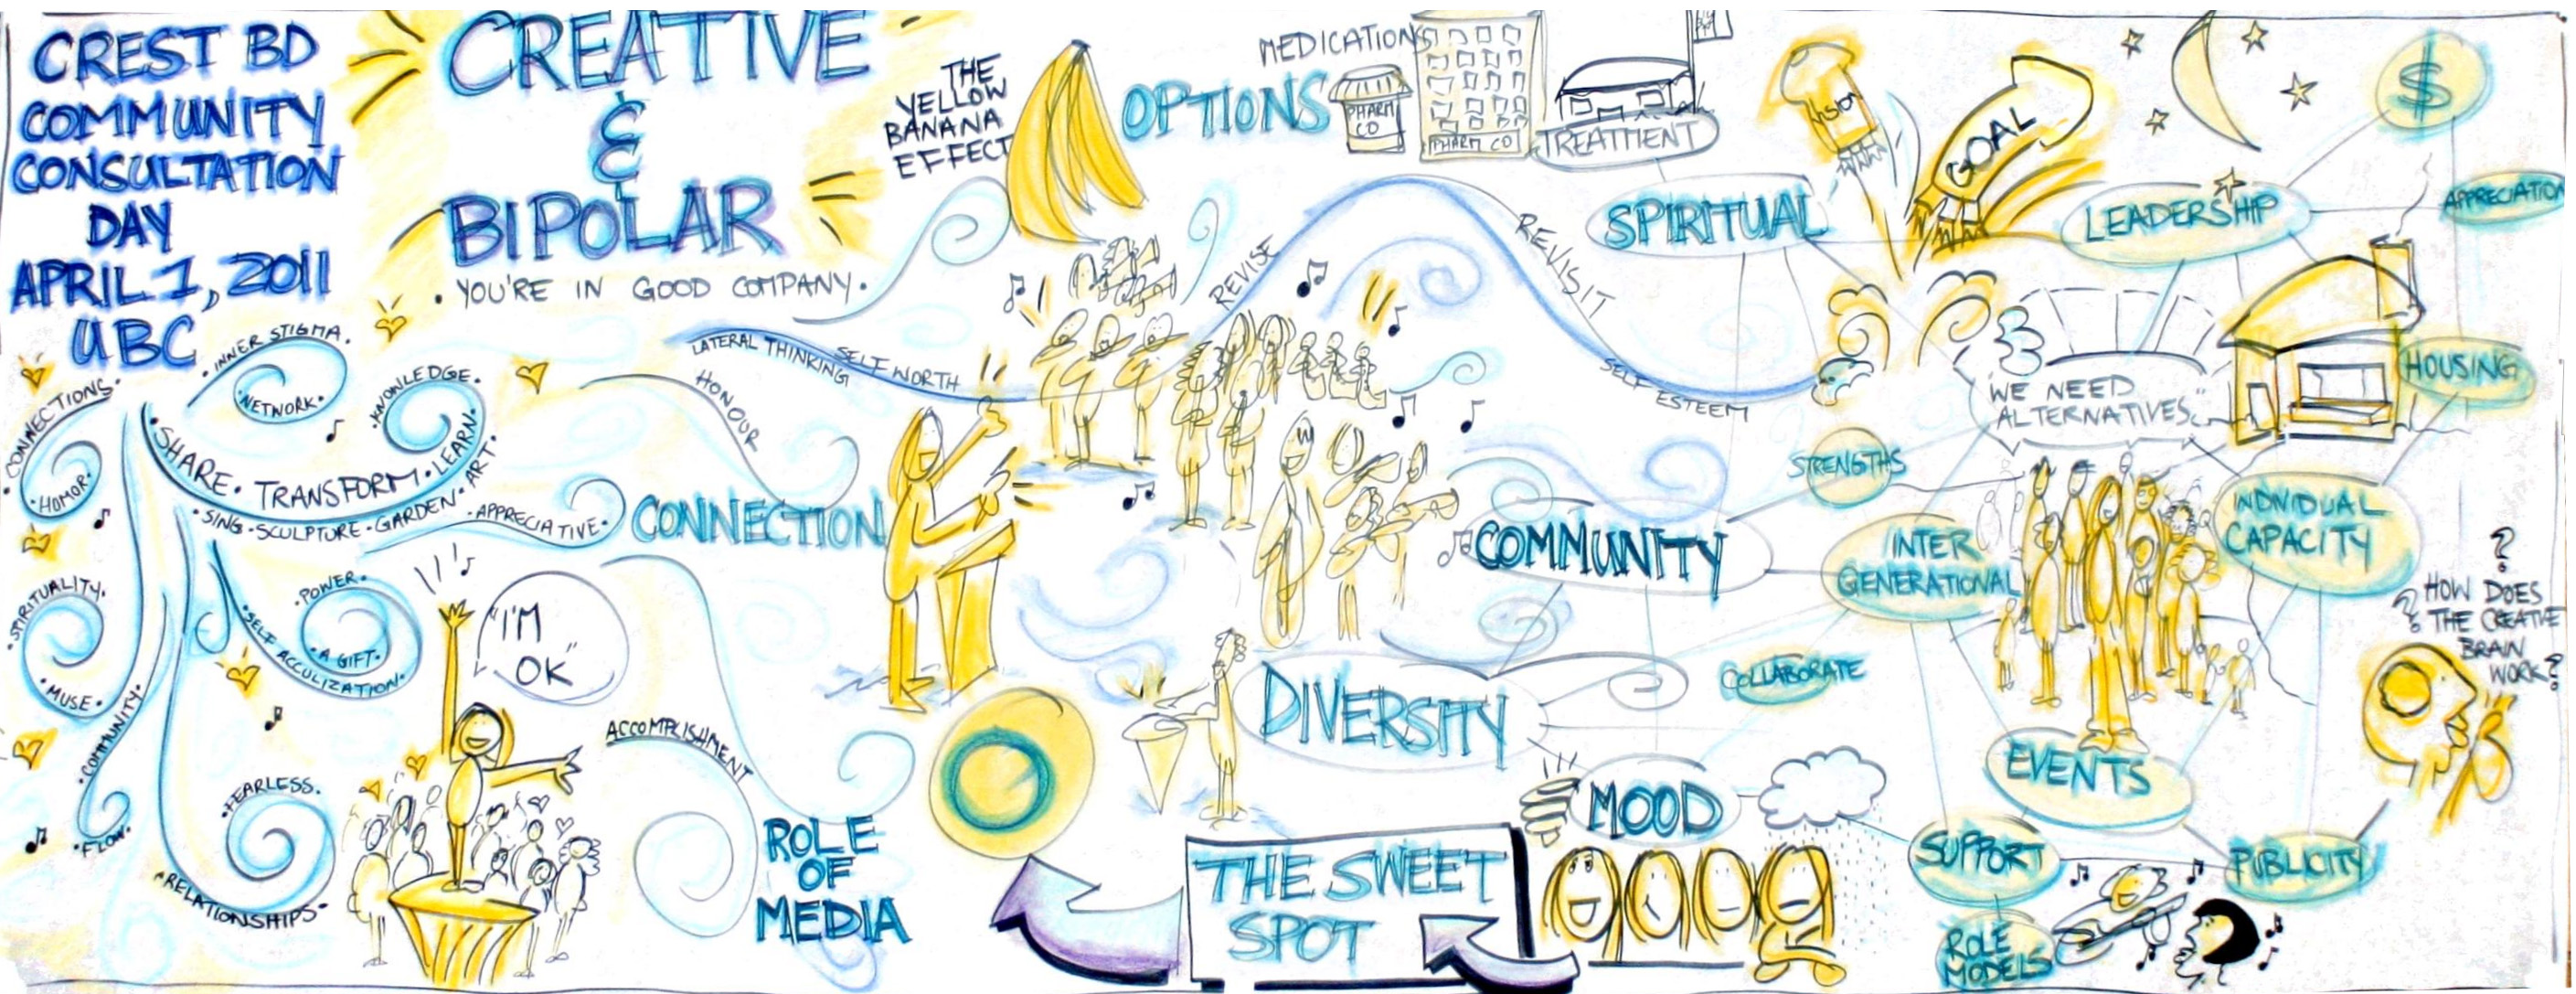 CREST BD
COMMUNITY
CONSULTATION
DAY
APRIL 1, 2011
UBC
CREATIVE
&
BIPOLAR
• YOU'RE IN GOOD COMPANY •
THE
YELLOW
BANANA
EFFECT
OPTIONS
MEDICATIONS
PHARM
CO
PHARM CO
TREATMENT
SPIRITUAL
VISION
GOAL
LEADERSHIP
$
APPRECIATION
HOUSING
"WE NEED
ALTERNATIVES."
REVISE
REVISIT
SELF
ESTEEM
LATERAL THINKING
SELF WORTH
HONOUR
• INNER STIGMA •
• NETWORK •
• KNOWLEDGE •
• CONNECTIONS •
• HOMOR •
• SHARE • TRANSFORM • LEARN •
• SING • SCULPTURE • GARDEN • ART •
• APPRECIATIVE •
CONNECTION
• SPIRITUALITY •
• MUSE •
• COMMUNITY •
• FLOW •
• POWER •
• A GIFT •
• SELF ACCULIZATION •
"I'M
OK"
ACCOMPLISHMENT
• FEARLESS •
• RELATIONSHIPS •
ROLE
OF
MEDIA
COMMUNITY
STRENGTHS
INTER
GENERATIONAL
INDIVIDUAL
CAPACITY
DIVERSITY
COLLABORATE
MOOD
THE SWEET
SPOT
EVENTS
SUPPORT
PUBLICITY
ROLE
MODELS
?
? HOW DOES
THE CREATIVE
BRAIN
WORK?